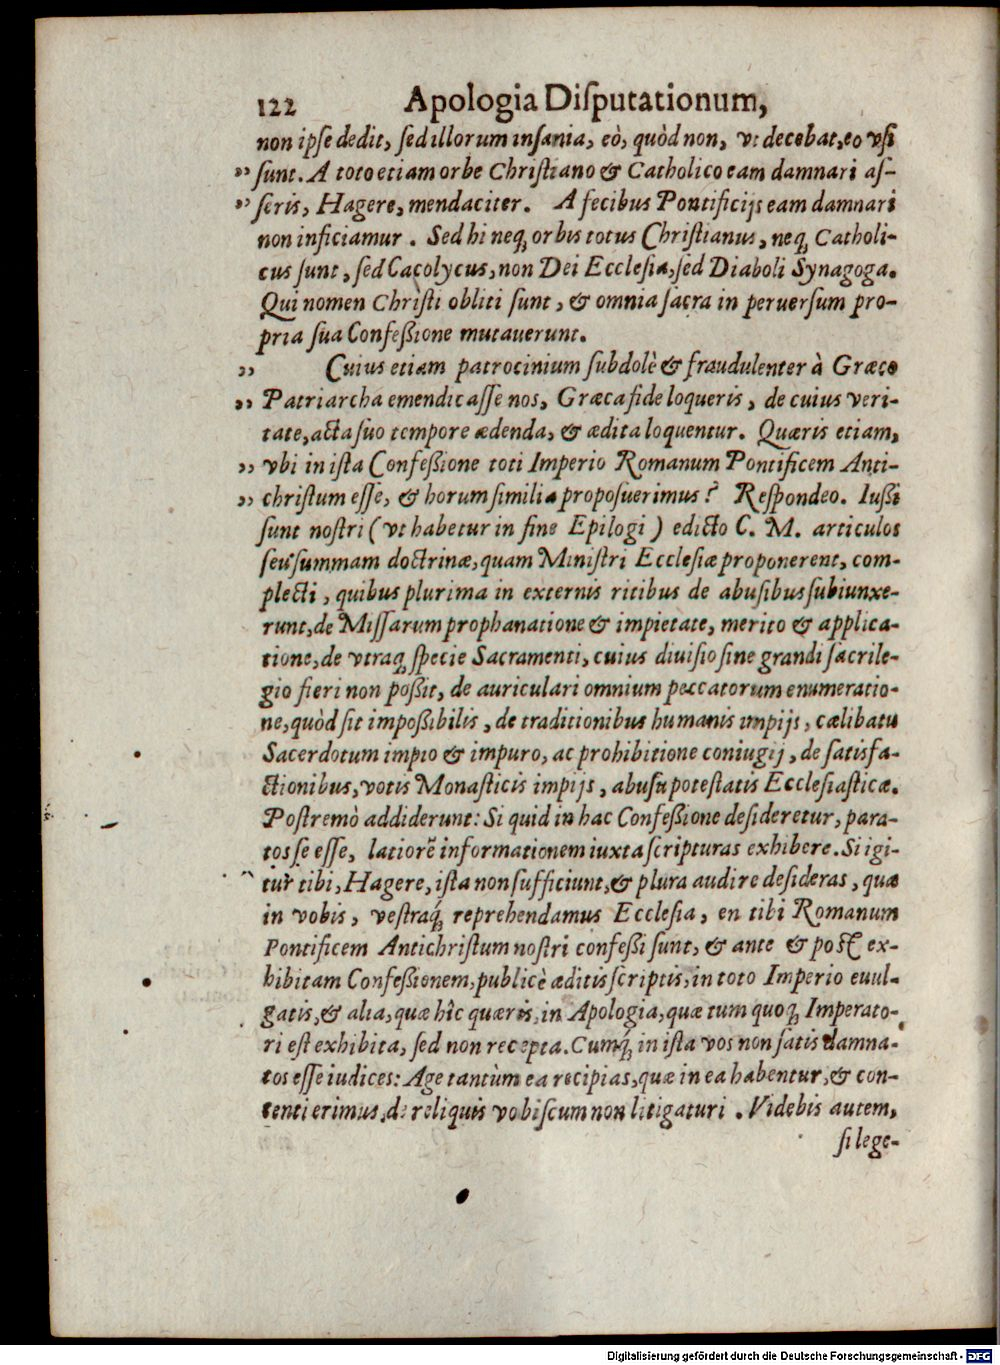 122 Apologia Diſputationum,
non ipſe dedit, ſed illorum inſania, eò, quòd non, vt decebat, eo vſi
,, ſunt. A toto etiam orbe Chriſtiano & Catholico eam damnari aſ-
,, ſeris, Hagere, mendaciter. A fecibus Pontificijs eam damnari
non inficiamur. Sed hi neq; orbis totus Chriſtianus, neq; Catholi-
cus ſunt, ſed Cacolycus, non Dei Eccleſia, ſed Diaboli Synagoga.
Qui nomen Chriſti obliti ſunt, & omnia ſacra in peruerſum pro-
pria ſua Confeßione mutauerunt.
,, Cuius etiam patrocinium ſubdolè & fraudulenter à Græco
,, Patriarcha emendicaſſe nos, Græca fide loqueris, de cuius veri-
tate, acta ſuo tempore ædenda, & ædita loquentur. Quæris etiam,
,, vbi in iſta Confeßione toti Imperio Romanum Pontificem Anti-
,, chriſtum eſſe, & horum ſimilia propoſuerimus? Reſpondeo. Iußi
ſunt noſtri (vt habetur in fine Epilogi) edicto C. M. articulos
ſeu ſummam doctrinæ, quam Miniſtri Eccleſiæ proponerent, com-
plecti, quibus plurima in externis ritibus de abuſibus ſubiunxe-
runt, de Miſſarum prophanatione & impietate, merito & applica-
tione, de vtraq; ſpecie Sacramenti, cuius diuiſio ſine grandi ſacrile-
gio fieri non poßit, de auriculari omnium peccatorum enumeratio-
ne, quòd ſit impoßibilis, de traditionibus humanis impijs, cælibatu
Sacerdotum impio & impuro, ac prohibitione coniugij, de ſatisfa-
ctionibus, votis Monaſticis impijs, abuſu poteſtatis Eccleſiaſticæ.
Poſtremò addiderunt: Si quid in hac Confeßione deſideretur, para-
tos ſe eſſe, latiorẽ informationem iuxta ſcripturas exhibere. Si igi-
tur tibi, Hagere, iſta non ſufficiunt, & plura audire deſideras, quæ
in vobis, veſtraq́; reprehendamus Eccleſia, en tibi Romanum
Pontificem Antichriſtum noſtri confeßi ſunt, & ante & poſt ex-
hibitam Confeßionem, publicè æditis ſcriptis, in toto Imperio euul-
gatis, & alia, quæ hîc quæris, in Apologia, quæ tum quoq; Imperato-
ri eſt exhibita, ſed non recepta. Cumq́; in iſta vos non ſatis damna-
tos eſſe iudices: Age tantùm ea recipias, quæ in ea habentur, & con-
tenti erimus, de reliquis vobiſcum non litigaturi. Videbis autem,
ſi lege-
Digitalisierung gefördert durch die Deutsche Forschungsgemeinschaft - DFG